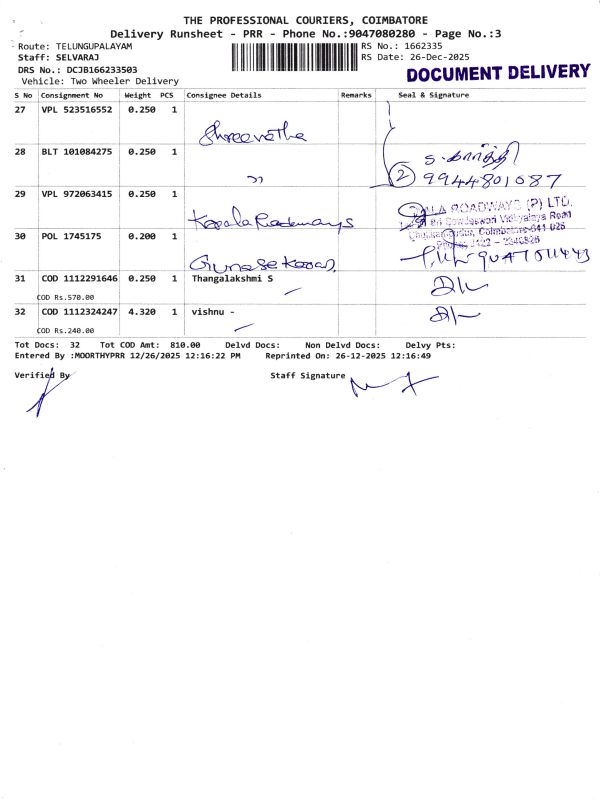 THE PROFESSIONAL COURIERS, COIMBATORE
Delivery Runsheet - PRR - Phone No.:9047080280 - Page No.:3
Route: TELUNGUPALAYAM RS No.: 1662335
Staff: SELVARAJ RS Date: 26-Dec-2025
DRS No.: DCJB166233503
DOCUMENT DELIVERY
Vehicle: Two Wheeler Delivery
S No Consignment No Weight PCS Consignee Details Remarks Seal & Signature
27 VPL 523516552 0.250 1
Shreevatha
28 BLT 101084275 0.250 1
"
2 9944801087
29 VPL 972063415 0.250 1
Kerala Roadways
ALA ROADWAYS (P) LTD.
30 POL 1745175 0.200 1
Gunasekaran
31 COD 1112291646 0.250 1 Thangalakshmi S
COD Rs.570.00
32 COD 1112324247 4.320 1 vishnu -
COD Rs.240.00
Tot Docs: 32 Tot COD Amt: 810.00 Delvd Docs: Non Delvd Docs: Delvy Pts:
Entered By :MOORTHYPRR 12/26/2025 12:16:22 PM Reprinted On: 26-12-2025 12:16:49
Verified By Staff Signature